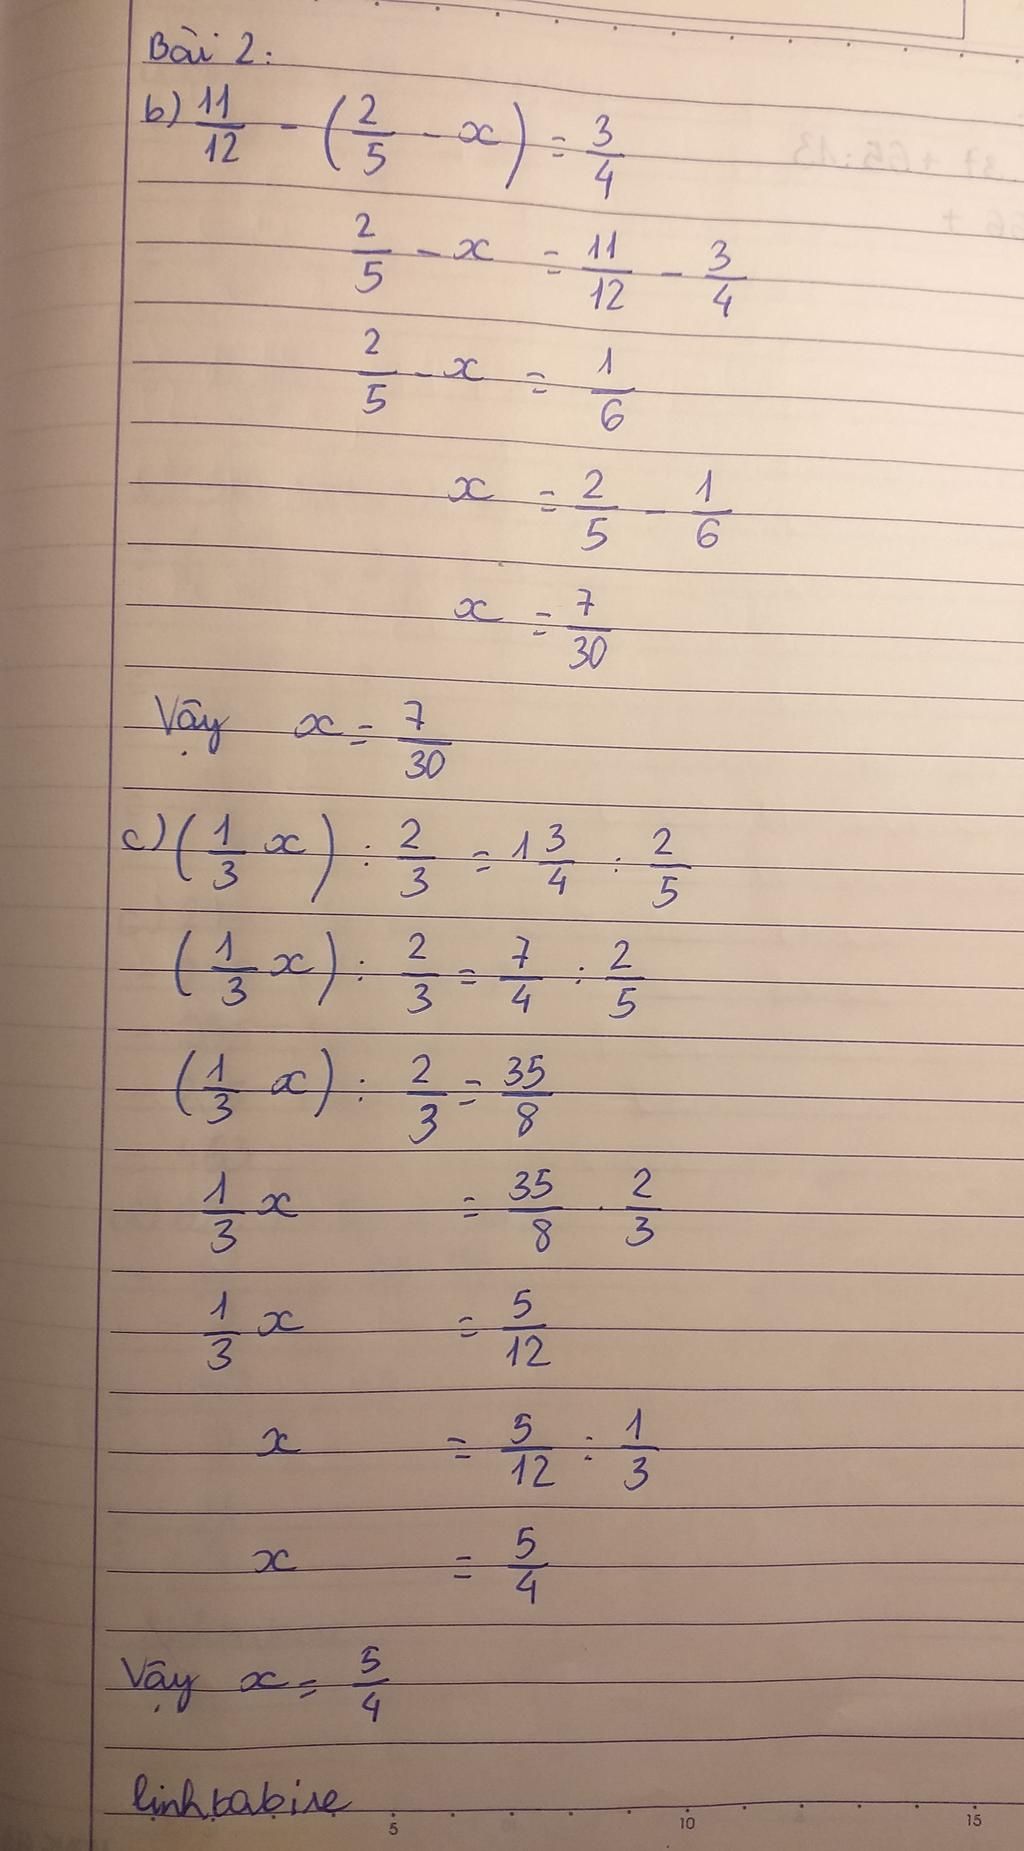 Bài 2:
b) 11/12 - (2/5 - x) = 3/4
2/5 - x = 11/12 - 3/4
2/5 - x = 1/6
x = 2/5 - 1/6
x = 7/30
Vậy x = 7/30
c) (1/3 x) : 2/3 = 1 3/4 : 2/5
(1/3 x) : 2/3 = 7/4 : 2/5
(1/3 x) : 2/3 = 35/8
1/3 x = 35/8 . 2/3
1/3 x = 5/12
x = 5/12 : 1/3
x = 5/4
Vậy x = 5/4
linhbabise
5 10 15